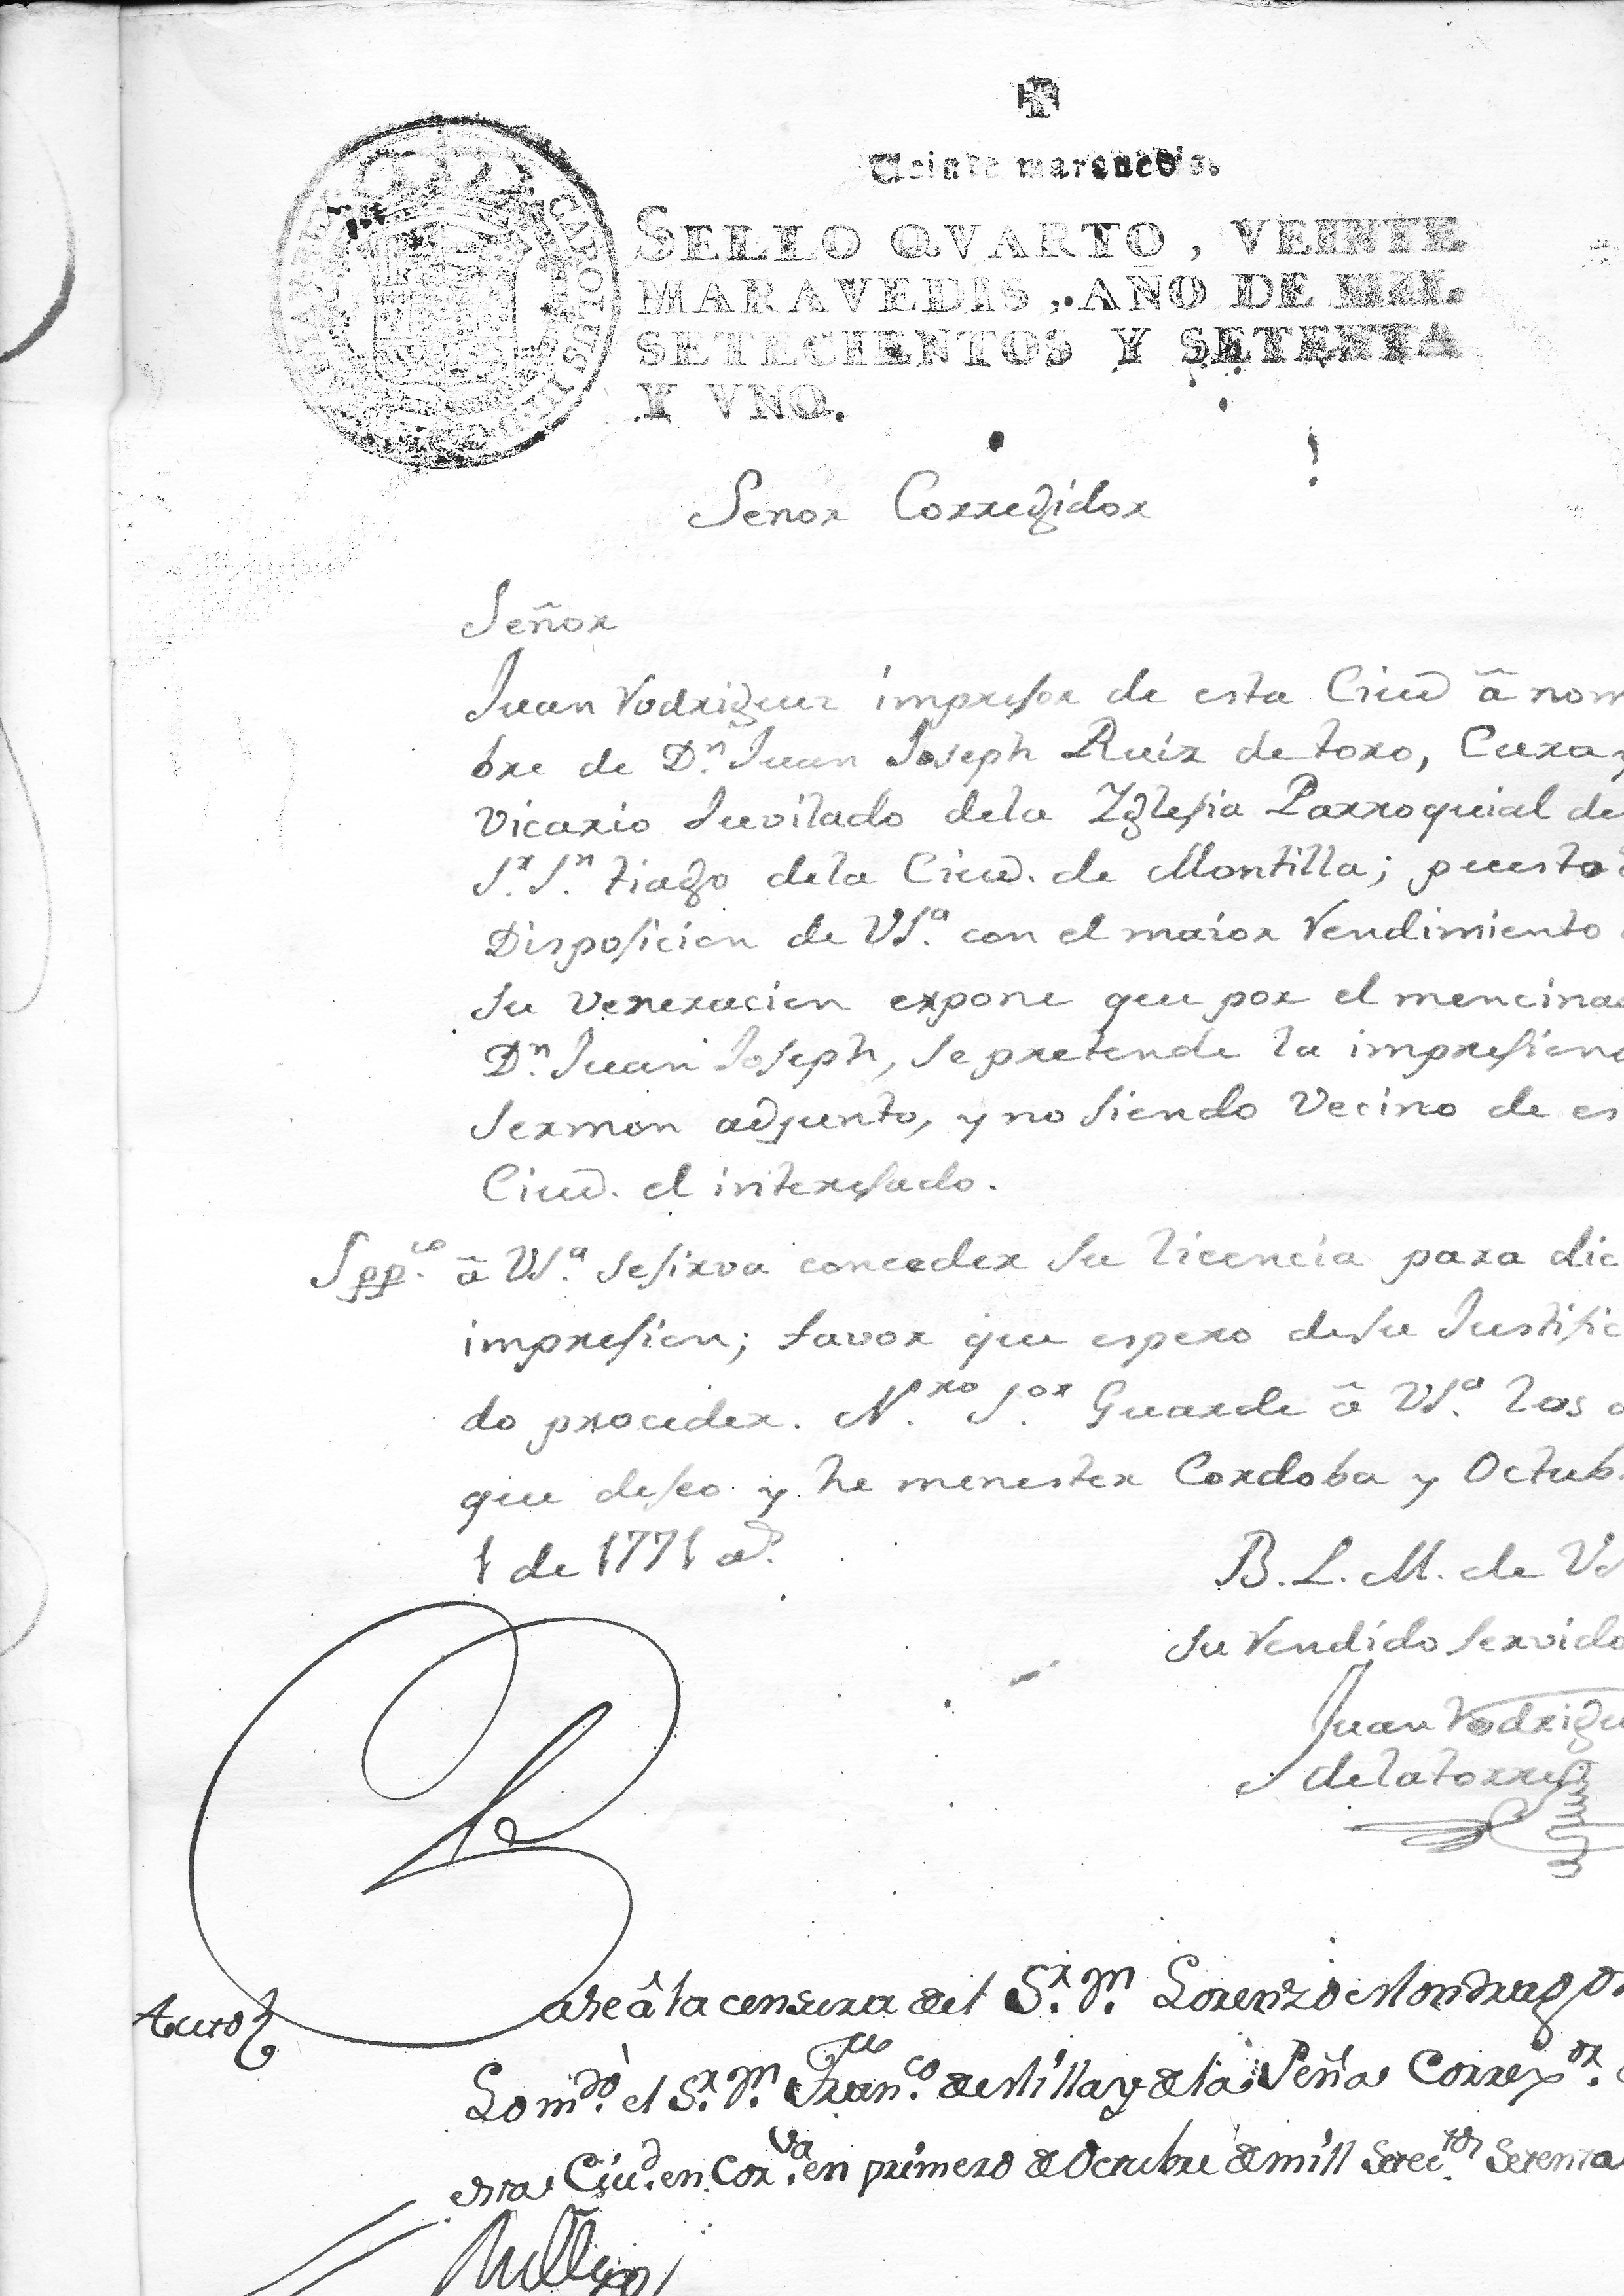 Veinte maravedis.
SELLO QVARTO, VEINTE
MARAVEDIS, AÑO DE MIL
SETECIENTOS Y SETENTA
Y VNO.
CAROLUS III D G
Senor Corregidor
Señor
Juan Rodriguez impresor de esta Ciud â nom
bre de Dn. Juan Joseph Ruiz de toro, Cura y
Vicario Juvilado dela Yglesia Parroquial de
Sr. Sn. tiago dela Ciud. de Montilla; puesto
Disposicion de VSa. con el maior Rendimiento
su veneracion expone que por el mencinad
Dn. Juan Joseph, se pretende la impresion
sermon adjunto, y no siendo Vecino de es
Ciud. el interesado.
Sppco. â VSa. se sirva conceder su licencia para dic
impresion; favor que espero desu Justific
do proceder. Nro Sor Guarde â VSa. los
que deseo y he menester Cordoba y Octub.
1 de 1771 as.
B. L. M. de VS
su Rendido servido
Juan Rodrigu
delatorre
Auto
ase â la censura del Sr. Dn. Lorenzo Mondragon
Lo mdo. el Sr. Dn. Franco. de Milla y dela Peña Correxor.
esta Ciud. en Corva. en primero de Octubre de mill Setectos. Setenta